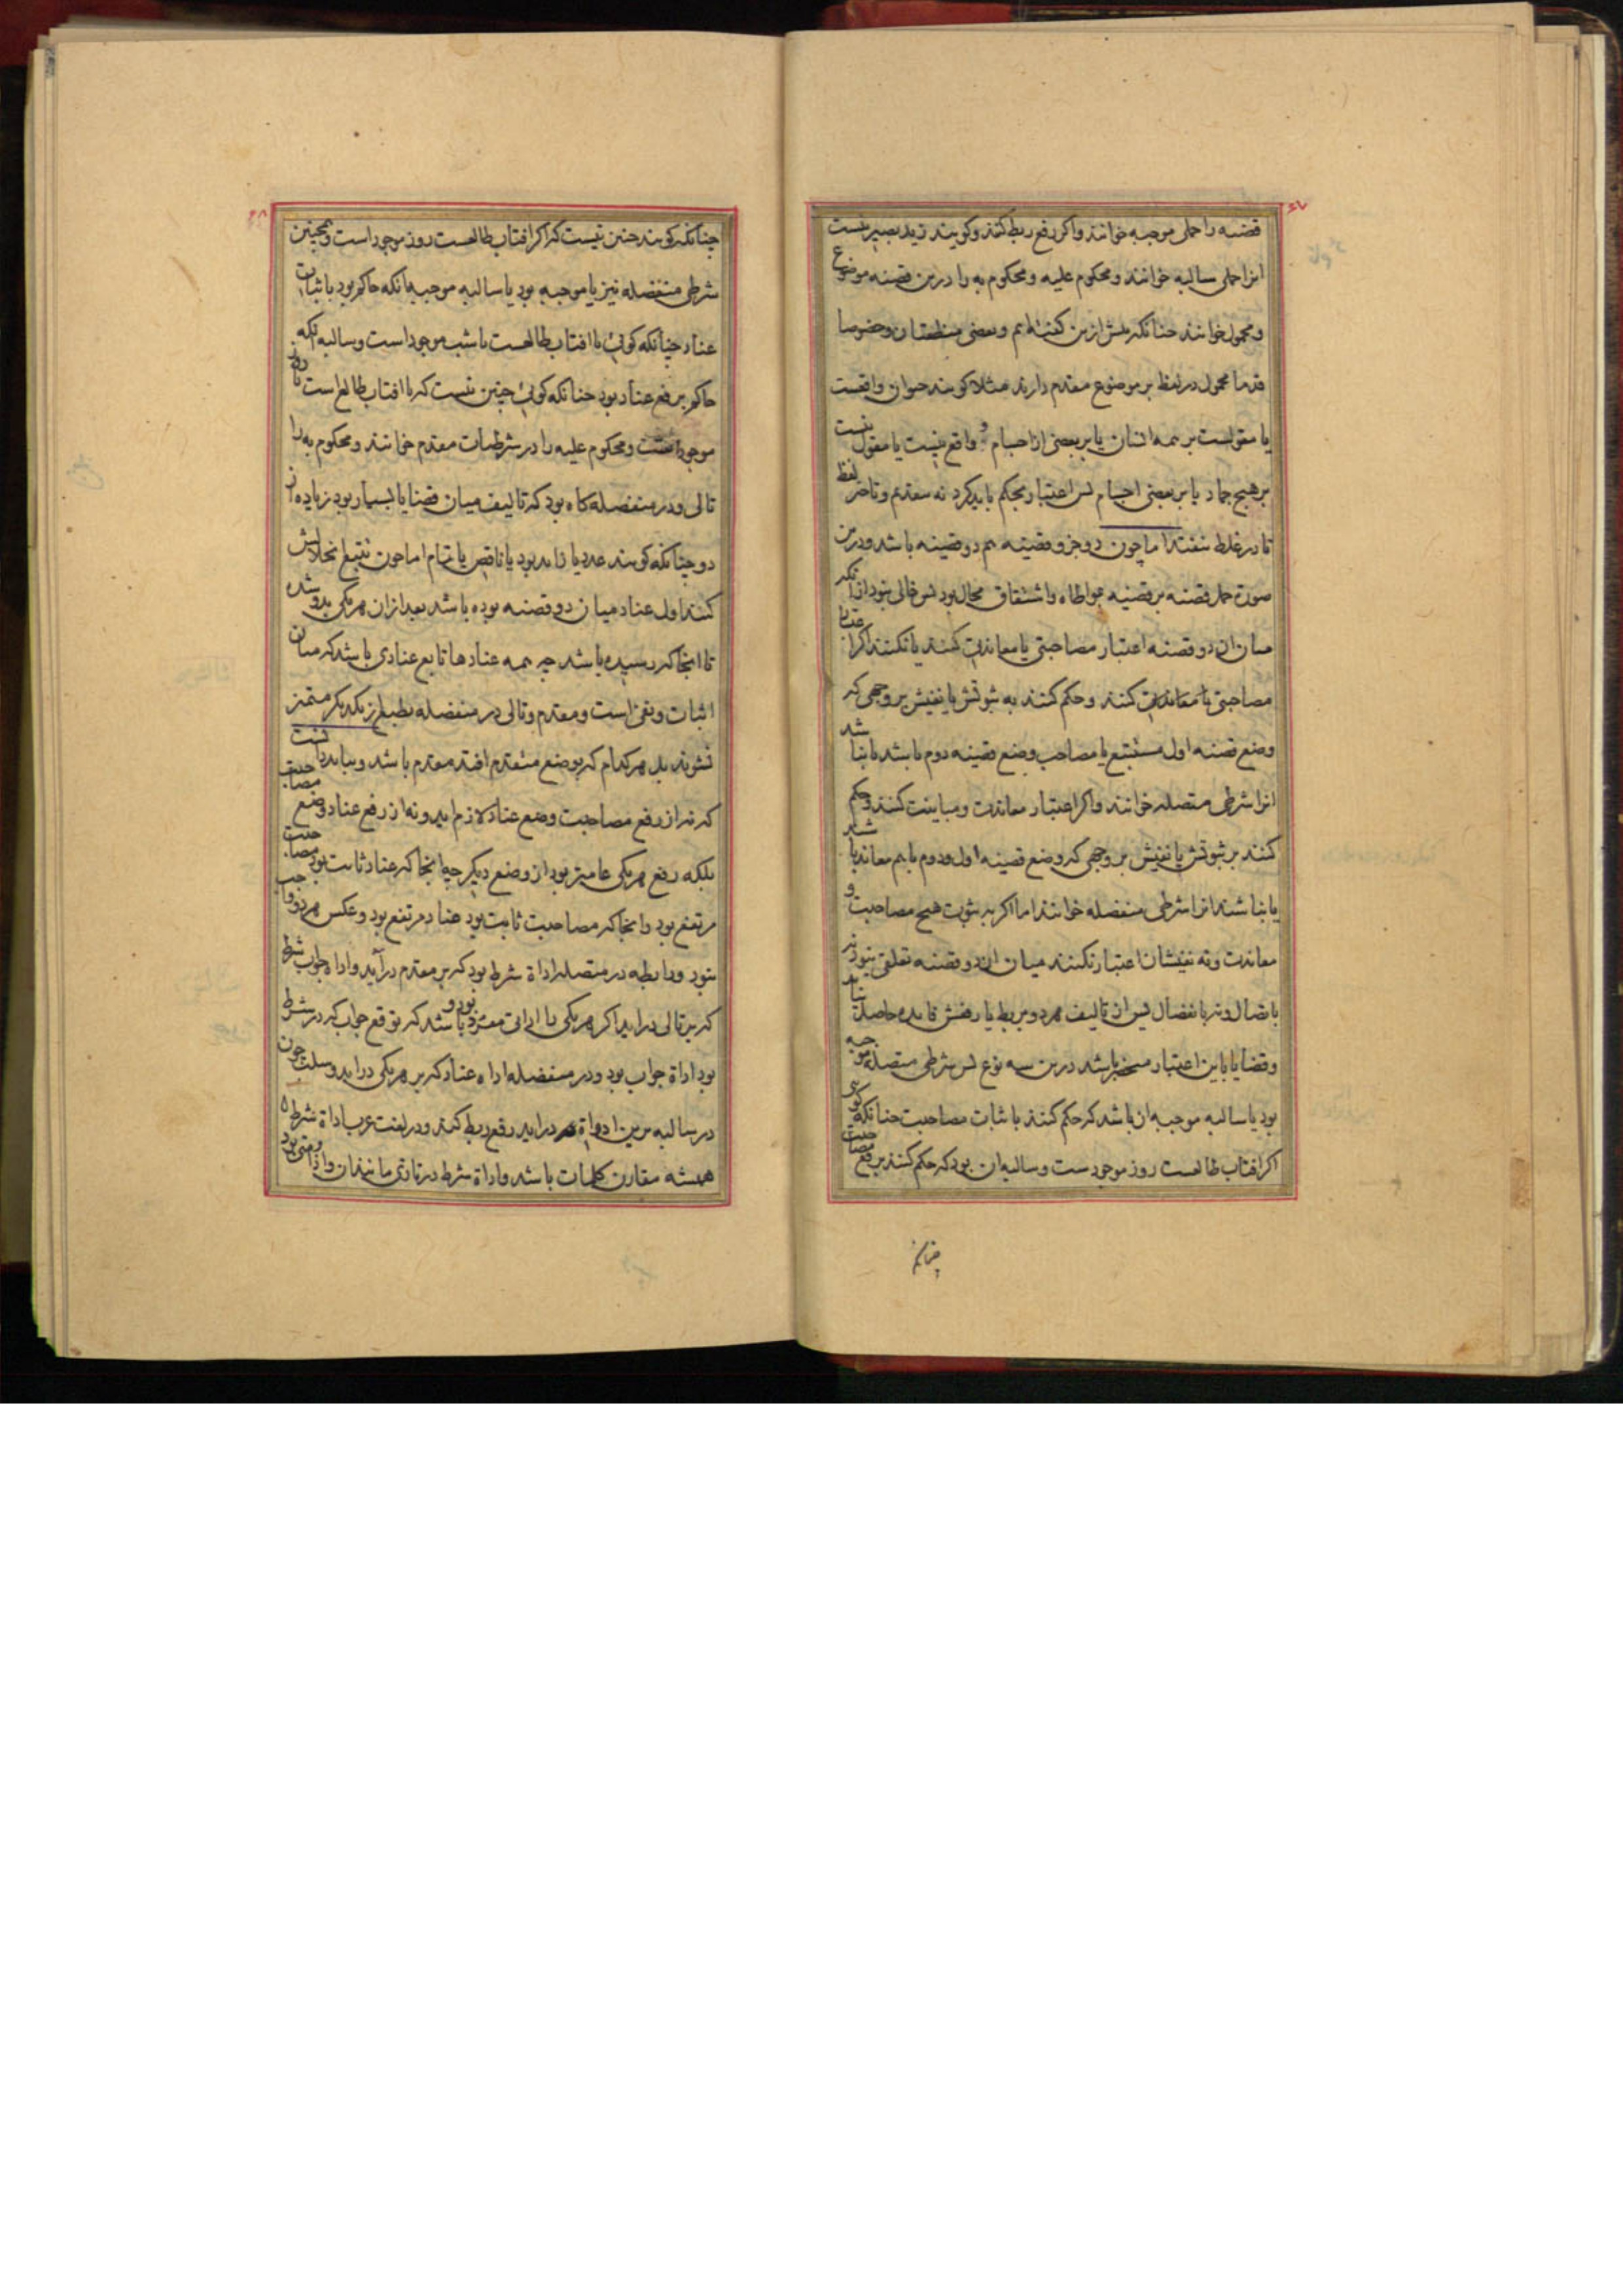 ۶۷
قضیه را حملی موجبه خوانند و اکر رفع ربط کنند و کویند زید بصیر نیست
انرا حملی سالبه خوانند و محکوم علیه و محکوم به را درین قضیه موضوع
و محمول خوانند چنانکه پیش ازین کفته‌ایم و بعضی منطقیان و خصوصا
قدما محمول در لفظ بر موضوع مقدم دارند مثلا کویند حیوان واقعست
یا مقولست بر همه انسان یا بر بعضی از اجسام و واقع نیست یا مقول نیست
بر هیچ جماد یا بر بعضی اجسام پس اعتبار بحکم باید کرد نه بتقدم و تاخر لفظ
تا در غلط نیفتد اما چون دو جزو قضیه هم دو قضیه باشد و درین
صورة حمل قضیه بر قضیه بمواطاه و اشتقاق محال بود پس خالی نبود از آنکه
میان ان دو قضیه اعتبار مصاحبتی یا معاندتی کنند یا نکنند اکر اعتبار
مصاحبتی یا معاندتی کنند و حکم کنند به ثبوتش یا نفیش بر وجهی که
وضع قضیه اول مستتبع یا مصاحب وضع قضیه دوم باشد یا نباشد
انرا شرطی متصله خوانند و اکر اعتبار معاندت و مباینت کنند و حکم
کنند بر ثبوتش یا نفیش بر وجهی که وضع قضیه اول و دوم با هم معاند باشند
یا نباشند انرا شرطی منفصله خوانند اما اکر به ثبوت هیچ مصاحبت و
معاندت و نه نفیشان اعتبار نکنند میان ان دو قضیه تعلقی نبود نه
باتصال و نه بانفصال پس از تالیف هر دو بربط یا رفعش فایده حاصل نیاید
و قضایا باین اعتبار منحصر باشد درین سه نوع پس شرطی متصله موجبه
بود یا سالبه موجبه ان باشد که حکم کنند باثبات مصاحبت چنانکه کوی
اکر افتاب طالعست روز موجودست و سالبه ان بود که حکم کنند برفع مصاحبت
چنانکه
۶۸
چنانکه کویند چنین نیست که اکر افتاب طالعست روز موجود است و همچنین
شرطی منفصله نیز یا موجبه بود یا سالبه موجبه چنانکه حاکم بود باثبات
عناد چنانکه کوئی یا افتاب طالعست یا شب موجود است و سالبه آنکه
حاکم برفع عناد بود چنانکه کوئی چنین نیست که یا افتاب طالع است یا روز
موجود است و محکوم علیه را در شرطیات مقدم خوانند و محکوم به را
تالی و در منفصله کاه بود که تالیف میان قضایا بسیار بود زیاده از
دو چنانکه کویند عدد یا زاید بود یا ناقص یا تمام اما چون تتبع انحلالش
کنند اول عناد میان دو قضیه بوده باشد بعد ازان هر یکی بدو شده
تا انجا که رسیده باشد چه همه عنادها تابع عنادی باشد که میان
اثبات و نفی است و مقدم و تالی در منفصله بطبع از یکدیکر متمیز
نشوند بل هر کدام که بوضع متقدم افتد مقدم باشد و بباید دانست
که نه از رفع مصاحبت وضع عناد لازم اید و نه از رفع عناد وضع مصاحبت
بلکه رفع هر یکی عامتر بود از وضع دیکر چه انجا که عناد ثابت بود مصاحبت
مرتفع بود و انجا که مصاحبت ثابت بود عناد مرتفع بود و عکس هر دو واجب
نبود و رابطه در متصله اداة شرط بود که بر مقدم در آید و اداة جواب شرط
که بر تالی در اید اکر هر یکی با اداتی مفرد بود و باشد که توقع جواب که در شرط
بود اداة جواب بود و در منفصله اداه عناد که بر هر یکی در اید و سلب چون
در سالبه برین ادواة در اید رفع ربط کند و در لغت عرب اداة شرط
همیشه مقارن کلمات باشد و اداة شرط در تازی مانند ان و اذا و متی بود